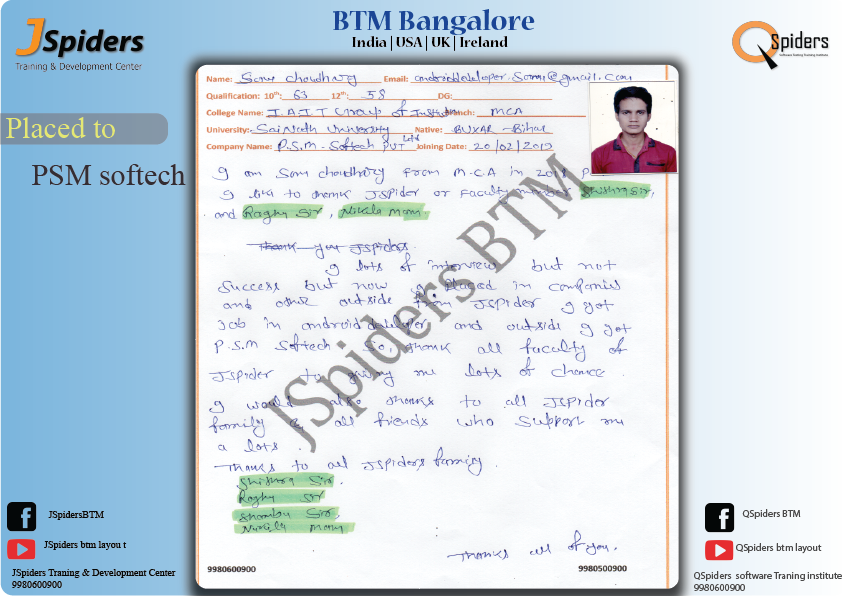 BTM Bangalore
India | USA | UK | Ireland
JSpiders
Training & Development Center
QSpiders
Software Training Institute
Placed to
PSM softech
Name: Sonu Choudhary Email: androiddeveloper.sonu@gmail.com
Qualification: 10th: 63 12th: 58 DG:
College Name: I.A.I.T Group of Branch: MCA
University:- Sai Nath University Native: BUXAR - Bihar
Company Name: P.S.M - Softech PVT Ltd Joining Date: 20/02/2019
I am Sonu Choudhary From M.C.A in 2018 P
I like to thank JSpider or Faculty
and Raghu Sir,
Thank you JSpiders.
I lots of interview but not
success but now I placed in companies
and other outside from JSpider I got
Job in android and outside I got
P.S.M Softech So, thank all faculty of
JSpider to giving me lots of chance.
I would also thanks to all JSpider
family & all friends who support me
a lots.
Thanks to all JSpiders family.
Sir.
Raghu Sir
Sir,
Mam,
Thanks all of you.
JSpiders BTM
9980600900 9980500900
JSpidersBTM
JSpiders btm layou t
JSpiders Traning & Development Center
9980600900
QSpiders BTM
QSpiders btm layout
QSpiders software Traning institute
9980600900